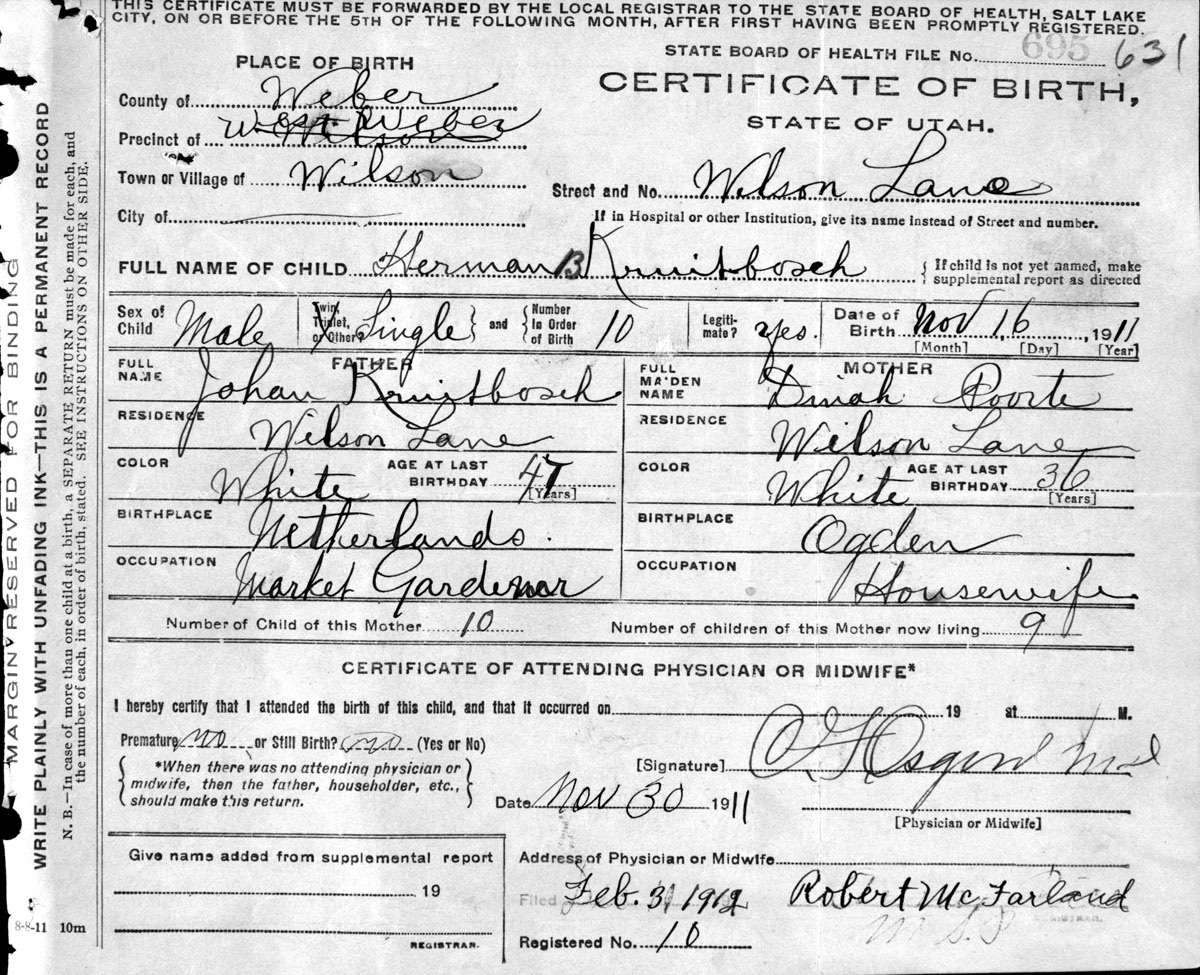 THIS CERTIFICATE MUST BE FORWARDED BY THE LOCAL REGISTRAR TO THE STATE BOARD OF HEALTH, SALT LAKE
CITY, ON OR BEFORE THE 5TH OF THE FOLLOWING MONTH, AFTER FIRST HAVING BEEN PROMPTLY REGISTERED.
STATE BOARD OF HEALTH FILE No. 695 631
PLACE OF BIRTH
CERTIFICATE OF BIRTH,
STATE OF UTAH.
County of Weber
Precinct of West Weber Wilson
Town or Village of Wilson
Street and No. Wilson Lane
City of
If in Hospital or other Institution, give its name instead of Street and number.
FULL NAME OF CHILD Herman B Kruitbosch
If child is not yet named, make
supplemental report as directed
Sex of Child Male
Twin, Triplet, or Other? Single
and Number In Order of Birth 10
Legiti-mate? yes.
Date of Birth Nov 16, 1911
[Month] [Day] [Year]
FATHER
FULL NAME Johan Kruitbosch
RESIDENCE Wilson Lane
COLOR White AGE AT LAST BIRTHDAY 47 [Years]
BIRTHPLACE Netherlands.
OCCUPATION Market Gardener
MOTHER
FULL MAIDEN NAME Dinah Poorte
RESIDENCE Wilson Lane
COLOR White AGE AT LAST BIRTHDAY 36 [Years]
BIRTHPLACE Ogden
OCCUPATION Housewife
Number of Child of this Mother 10 Number of children of this Mother now living 9
CERTIFICATE OF ATTENDING PHYSICIAN OR MIDWIFE*
I hereby certify that I attended the birth of this child, and that it occurred on 19 at M.
Premature no or Still Birth? no (Yes or No)
*When there was no attending physician or
midwife, then the father, householder, etc.,
should make this return.
[Signature] Md
Date Nov 30 1911
[Physician or Midwife]
Give name added from supplemental report
19
REGISTRAR.
Address of Physician or Midwife
Filed Feb. 3, 1912 Robert McFarland
REGISTRAR.
Registered No. 10
8-8-11 10m
MARGIN RESERVED FOR BINDING
WRITE PLAINLY WITH UNFADING INK—THIS IS A PERMANENT RECORD
N. B.—In case of more than one child at a birth, a SEPARATE RETURN must be made for each, and
the number of each, in order of birth, stated. SEE INSTRUCTIONS ON OTHER SIDE.